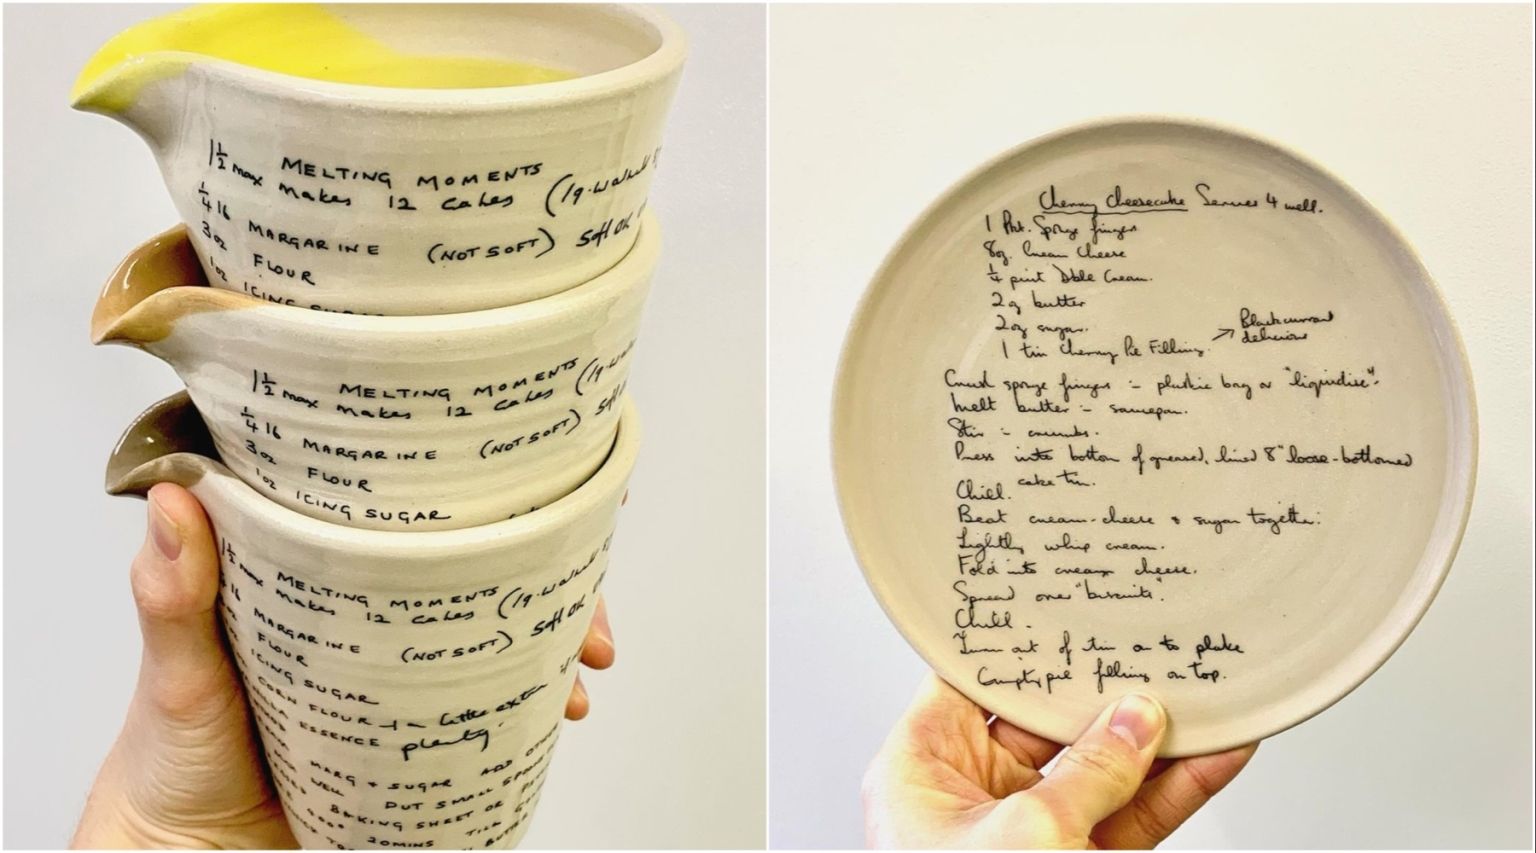 MELTING MOMENTS
1½ max makes 12 cakes (19. walnut
¼ lb MARGARINE (NOT SOFT) Soft OK
3 oz FLOUR
1 oz ICING SUGAR
MELTING MOMENTS
1½ max makes 12 cakes (19. walnut
¼ lb MARGARINE (NOT SOFT) Soft
3 oz FLOUR
1 oz ICING SUGAR
MELTING MOMENTS
1½ max makes 12 cakes (19. walnut
¼ lb MARGARINE (NOT SOFT) Soft OK
FLOUR
ICING SUGAR
CORN FLOUR + a little extra if
ESSENCE plenty.
MARG + SUGAR ADD OTHER
WELL PUT SMALL SPOON
BAKING SHEET OR
20 MINS TILL
BUTTER
Cherry Cheesecake Serves 4 well.
1 Pkt. Sponge fingers
8oz. Cream Cheese
¼ pint Dble Cream.
2 oz butter
2oz sugar.
1 tin Cherry Pie Filling → Blackcurrant
delicious
Crush sponge fingers :- plastic bag or "liquidise".
Melt butter :- saucepan.
Stir :- crumbs.
Press into bottom of greased, lined 8" loose-bottomed
cake tin.
Chill.
Beat cream-cheese & sugar together.
Lightly whip cream.
Fold into cream cheese.
Spread over "biscuits".
Chill.
Turn out of tin on to plate
Empty pie filling on top.